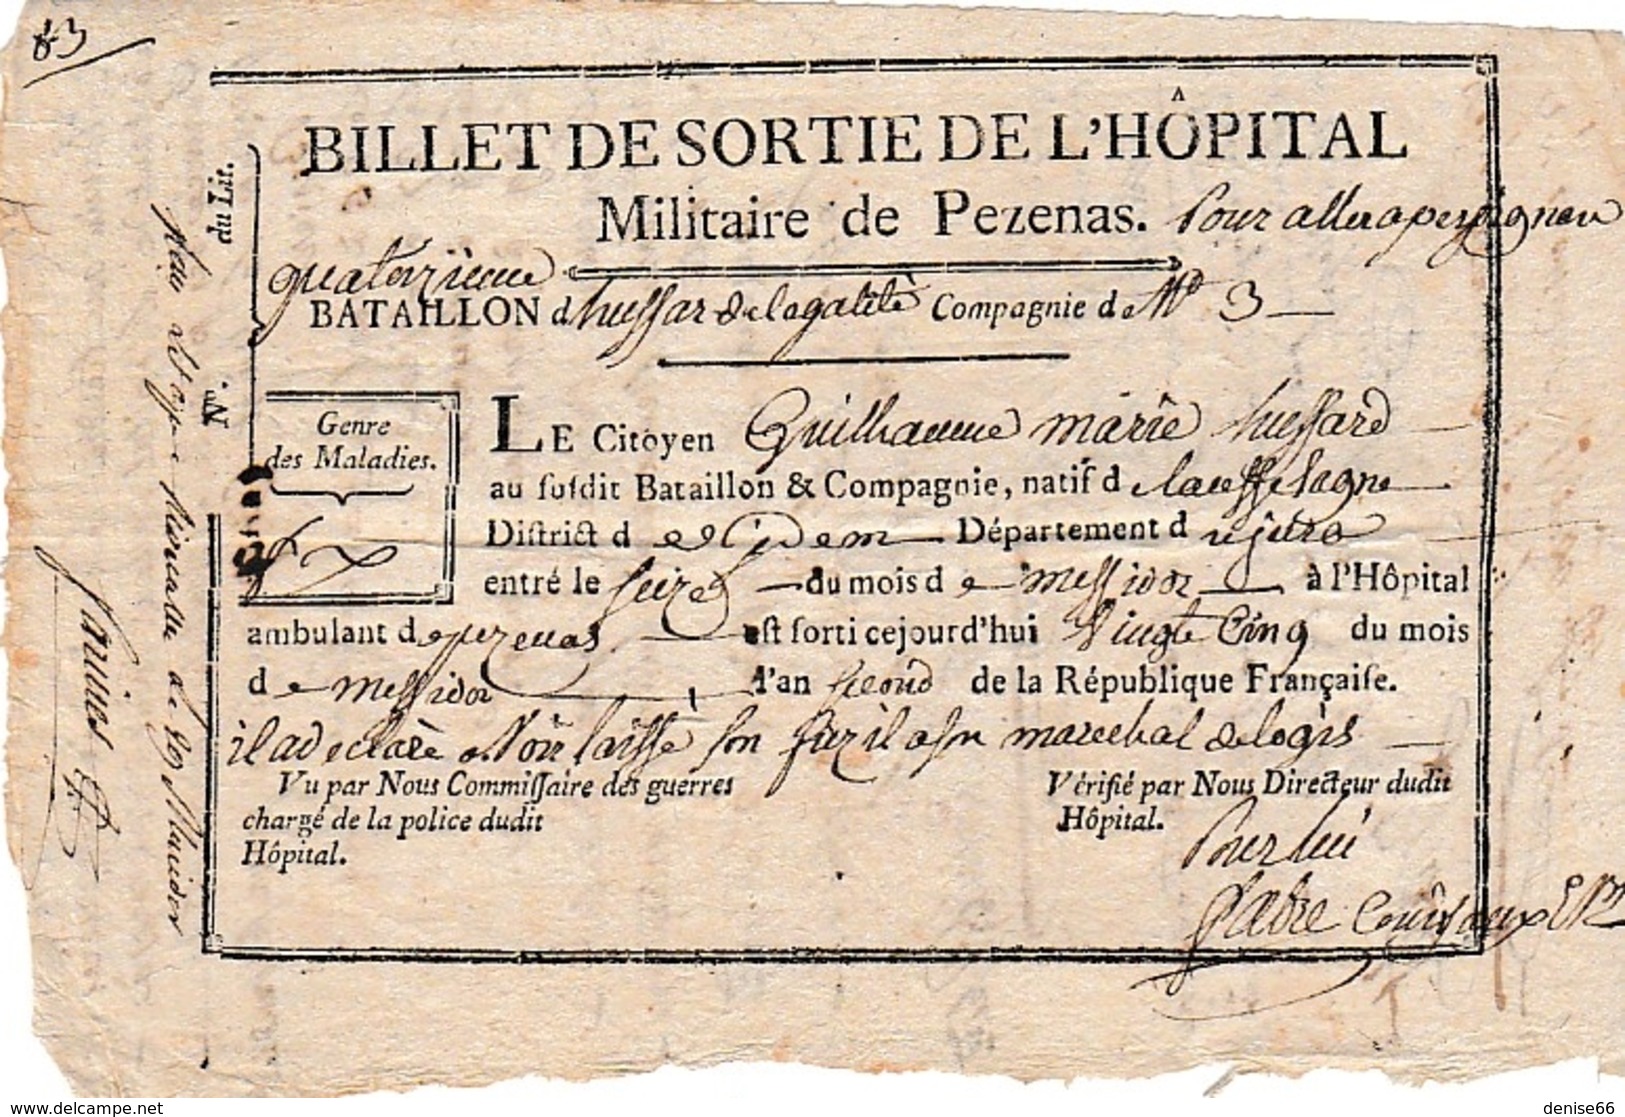 83
BILLET DE SORTIE DE L'HÔPITAL
Militaire de Pezenas. Pour aller a perpignan
quatorzieme
BATAILLON d hussar de legalité Compagnie d e N° 3
N°. du Lit.
Genre
des Maladies.
LE Citoyen Guilhaume marie hussard
au susdit Bataillon & Compagnie, natif d
District d e idem Département d u jura
entré le seize du mois d e messidor à l'Hôpital
ambulant d e pezenas est sorti cejourd'hui Vingt Cinq du mois
d e messidor l'an second de la République Française.
il a declaré avoir laissé son fuzil a son marechal de logis
Vu par Nous Commissaire des guerres
chargé de la police dudit
Hôpital.
Vérifié par Nous Directeur dudit
Hôpital.
Pour lui
a de 29 Messidor
delcampe.net
denise66